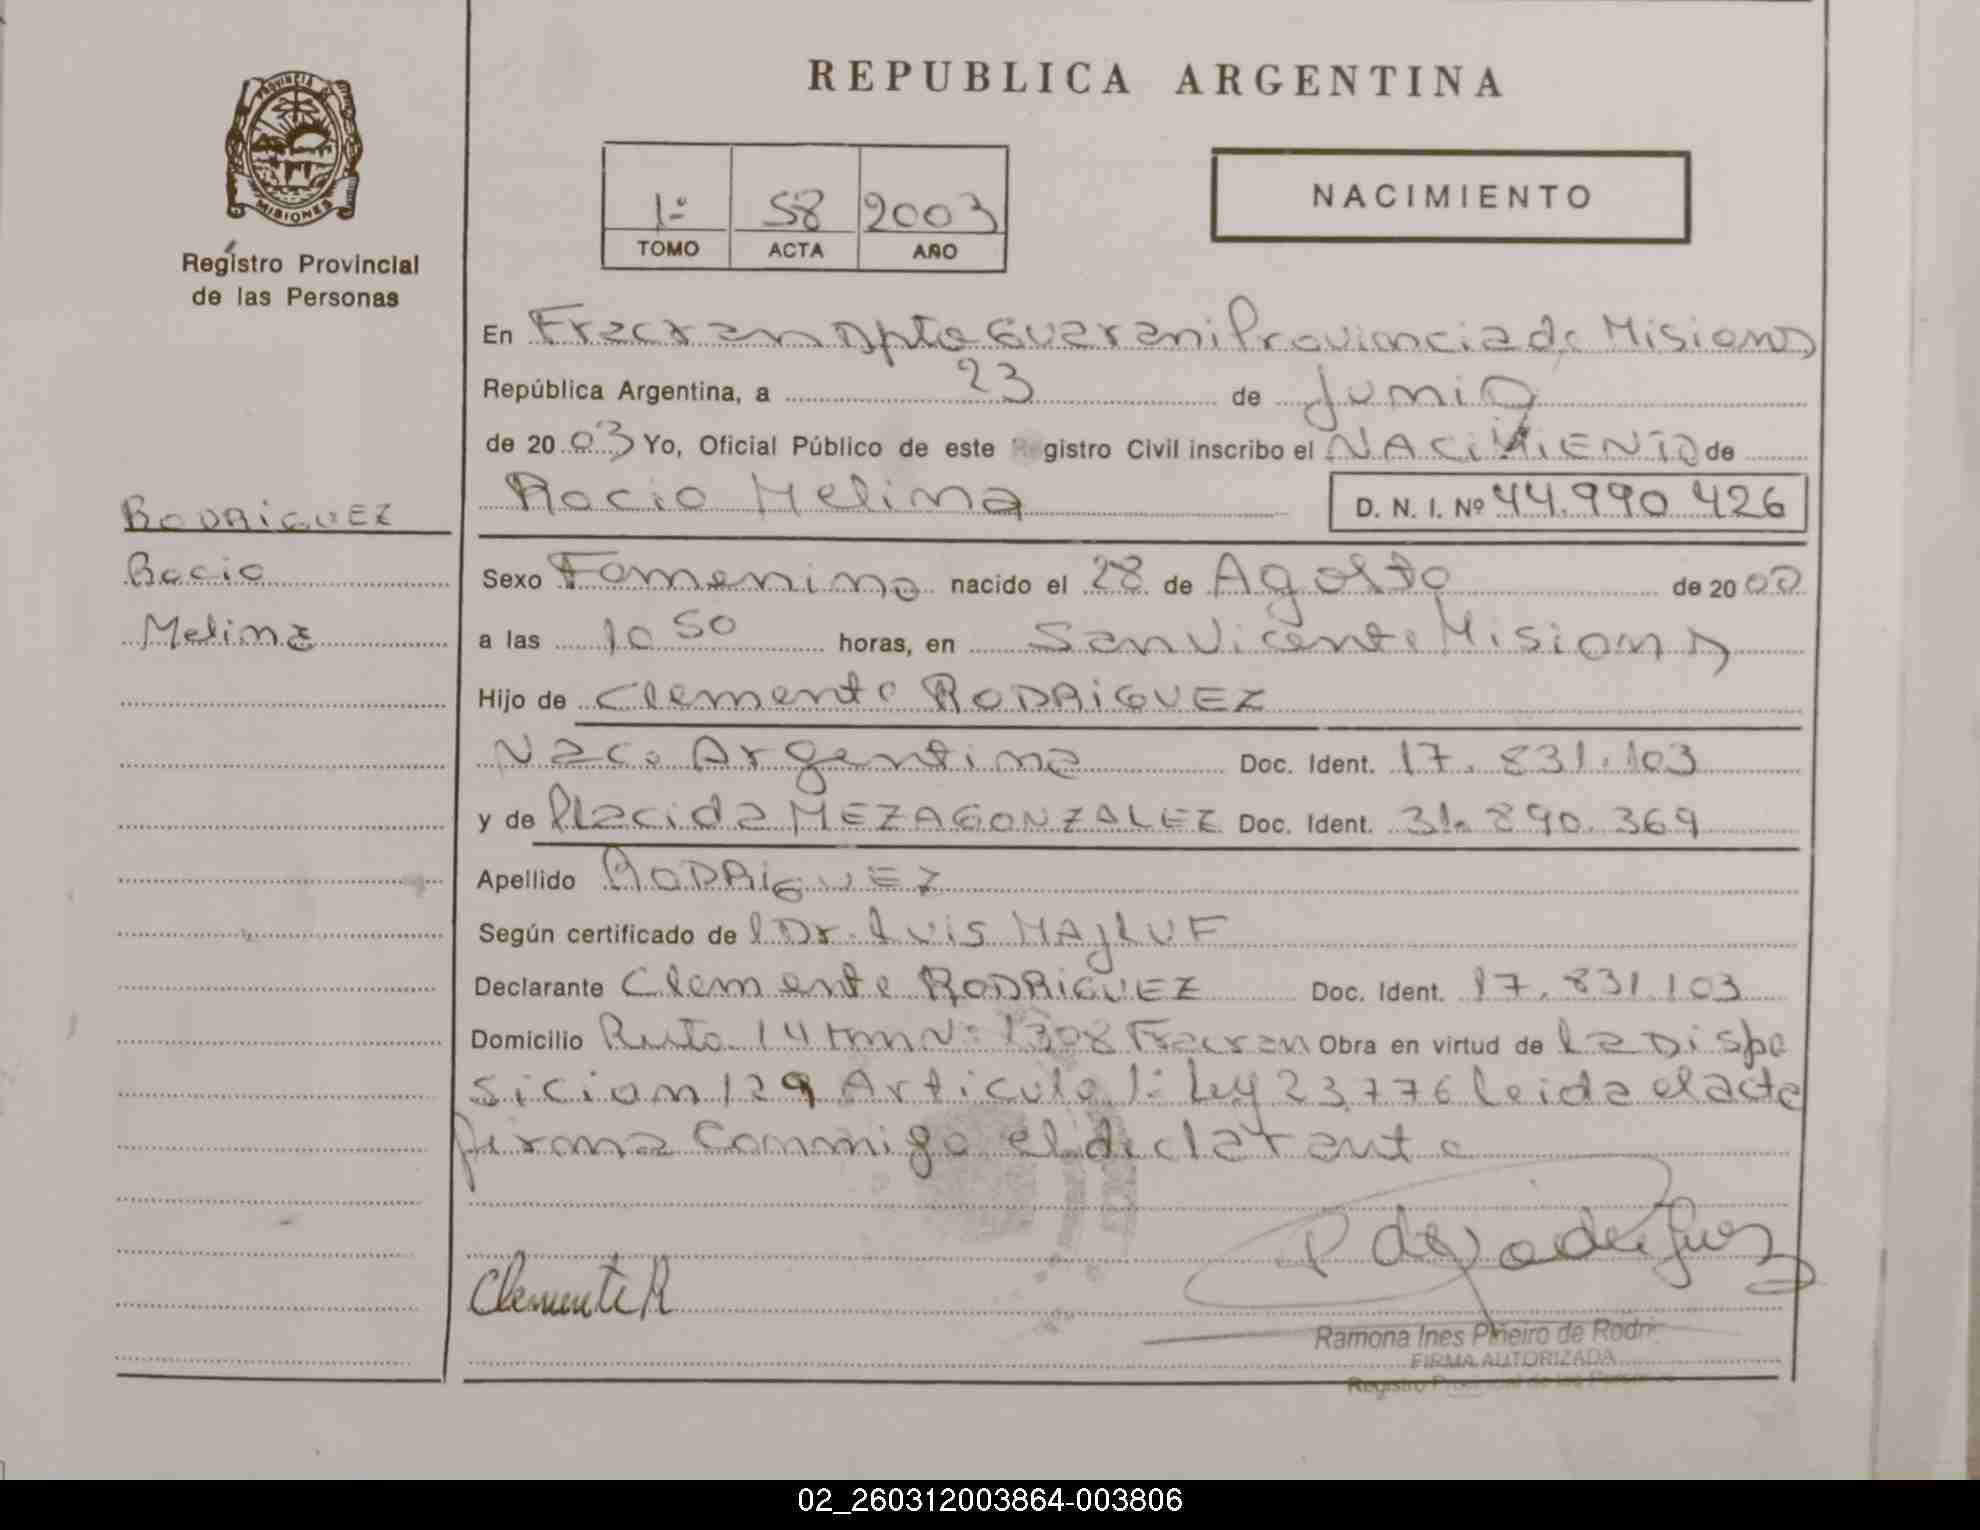 REPUBLICA ARGENTINA
PROVINCIA DE
MISIONES
Registro Provincial
de las Personas
1º 58 2003
TOMO ACTA AÑO
NACIMIENTO
En Fracran Dpto Guarani Provincia de Misiones
República Argentina, a 23 de Junio
de 2003 Yo, Oficial Público de este Registro Civil inscribo el NACIMIENTO de
Rocio Melina D. N. I. Nº 44.990.426
RODRIGUEZ
Rocio
Melina
Sexo Femenino nacido el 28 de Agosto de 2000
a las 10 50 horas, en San Vicente Misiones
Hijo de Clemente RODRIGUEZ
Nac. Argentina Doc. Ident. 17.831.103
y de Placida MEZA GONZALEZ Doc. Ident. 31.890.369
Apellido RODRIGUEZ
Según certificado de Dr. Luis MAJLUF
Declarante Clemente RODRIGUEZ Doc. Ident. 17.831.103
Domicilio Ruta 14 Km Nº 1308 Fracran Obra en virtud de la Dispo
sicion 129 Articulo 1º Ley 23.776 leida el acta
firma conmigo el declarante
Clemente R
R de Rodriguez
Ramona Ines Piñeiro de Rodri
FIRMA AUTORIZADA
Registro Provincial de las Personas
02_260312003864-003806